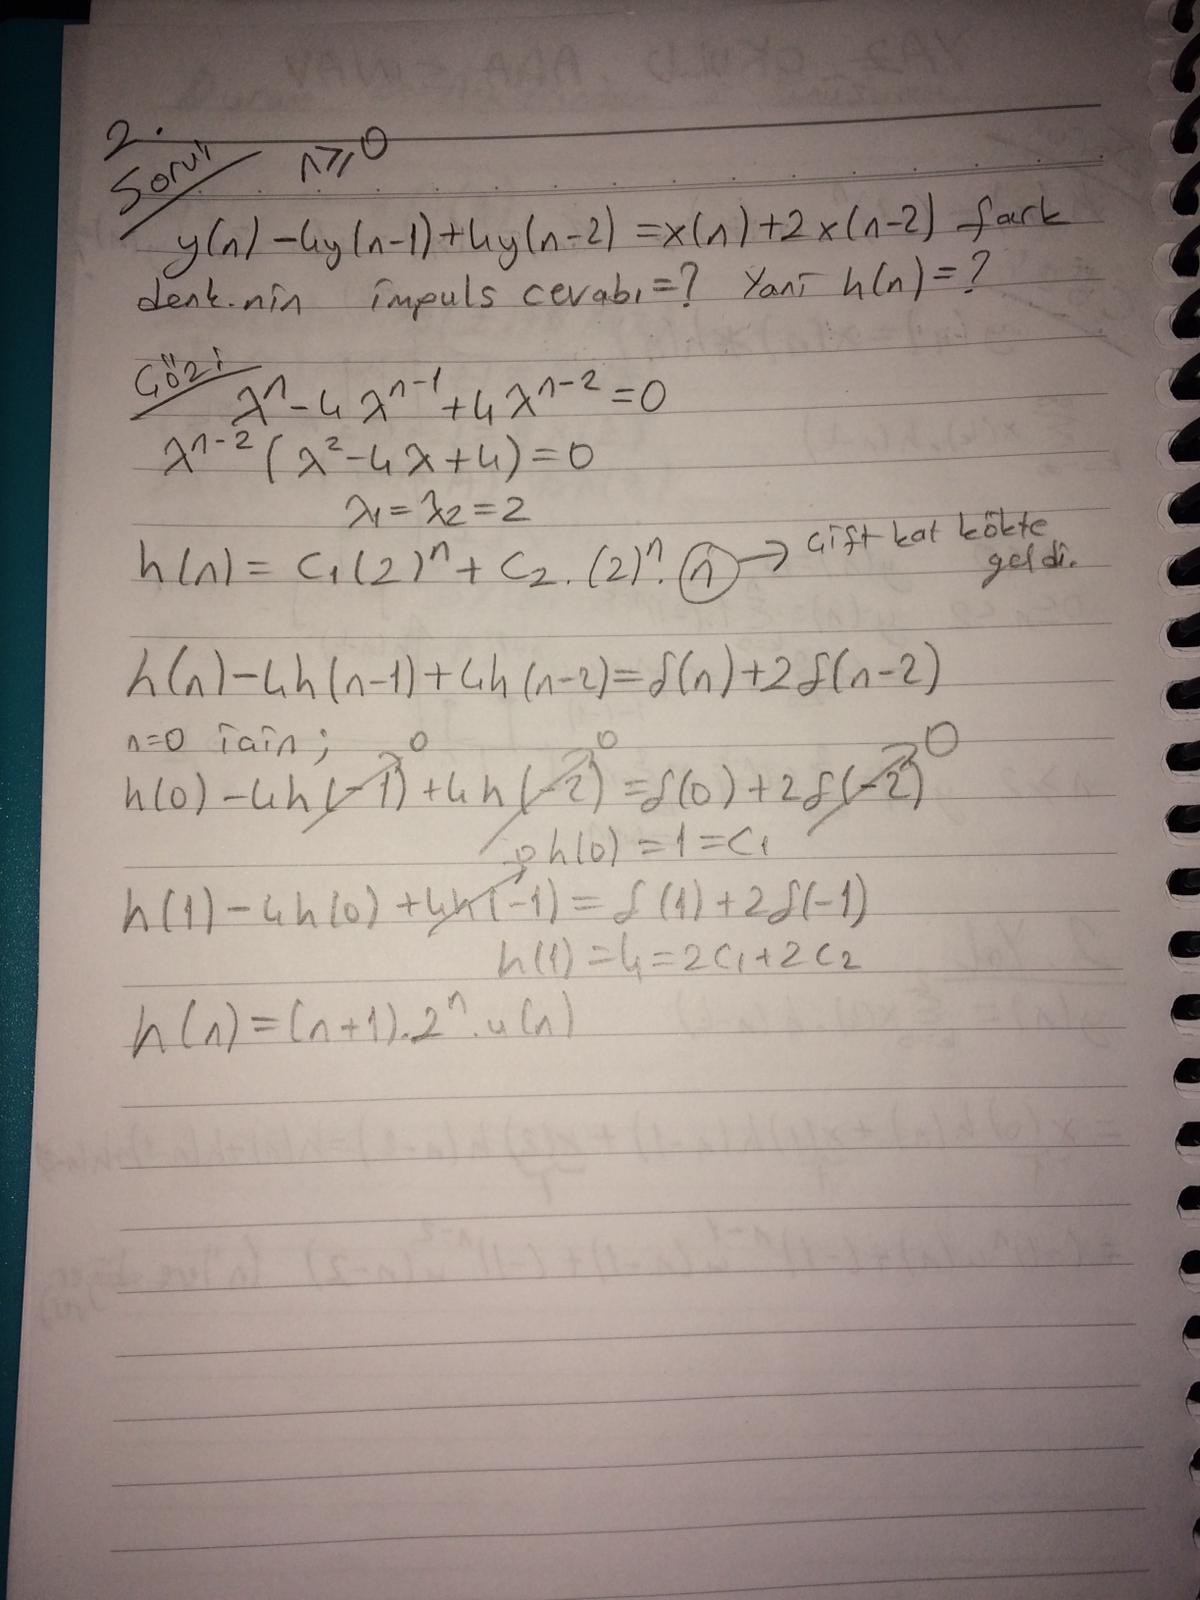 2.
Soru: n≥0
y(n)-4y(n-1)+4y(n-2)=x(n)+2x(n-2) fark
denk.nin impuls cevabı=? Yani h(n)=?
Çöz:
λ^n-4λ^(n-1)+4λ^(n-2)=0
λ^(n-2)(λ²-4λ+4)=0
λ₁=λ₂=2
h(n)=C₁(2)^n+C₂.(2)^n.n → Çift kat kökte
geldi.
h(n)-4h(n-1)+4h(n-2)=δ(n)+2δ(n-2)
n=0 için;
0 0 0
h(0)-4h(-1)+4h(-2)=δ(0)+2δ(-2)
h(0)=1=C₁
0
h(1)-4h(0)+4h(-1)=δ(1)+2δ(-1)
h(1)=4=2C₁+2C₂
h(n)=(n+1).2^n.u(n)